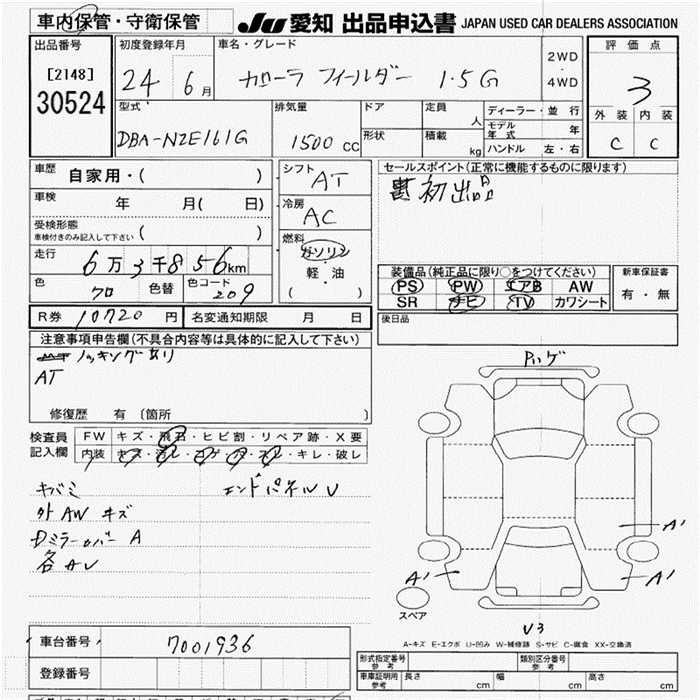 車内保管・守衛保管
JU 愛知 出品申込書 JAPAN USED CAR DEALERS ASSOCIATION
出品番号
[2148]
30524
初度登録年月
24 6月
車名・グレード
カローラ フィールダー 1.5G
2WD
・
4WD
評価点
3
外装 内装
C C
型式
DBA-NZE161G
排気量
1500 CC
ドア
形状
定員
人
積載
kg
ディーラー・並行
モデル年式 年
ハンドル 左・右
車歴
自家用・( )
車検
年 月( 日)
受検形態
車検付きのみ記入して下さい ( )
走行
6万3千856km
色
クロ
色替
色コード
209
シフト
AT
冷房
AC
燃料
ガソリン
・
軽・油
( )
セールスポイント(正常に機能するものに限ります)
初出品
装備品(純正品に限り○をつけてください)
PS PW エアB AW
SR ナビ TV カワシート
新車保証書
有・無
R券 10720 円
名変通知期限 月 日
後日品
注意事項申告欄(不具合内容等は具体的に記入して下さい)
ノッキングあり
AT
修復歴 有 〔箇所 〕
検査員記入欄
FW キズ・飛石・ヒビ割・リペア跡・X要
内装 キズ・汚レ・コゲ・穴・スレ・キレ・破レ
キバミ エンドパネルU
外AWキズ
DミラーカバーA
各AU
Pハゲ
A'
A'
A'
スペア
U3
A-キズ E-エクボ U-凹み W-補修跡 S-サビ C-腐食 XX-交換済
車台番号
7001936
登録番号
形式指定番号
参考
類別区分番号
参考
車庫証明用
参考
長さ cm
幅 cm
高さ cm